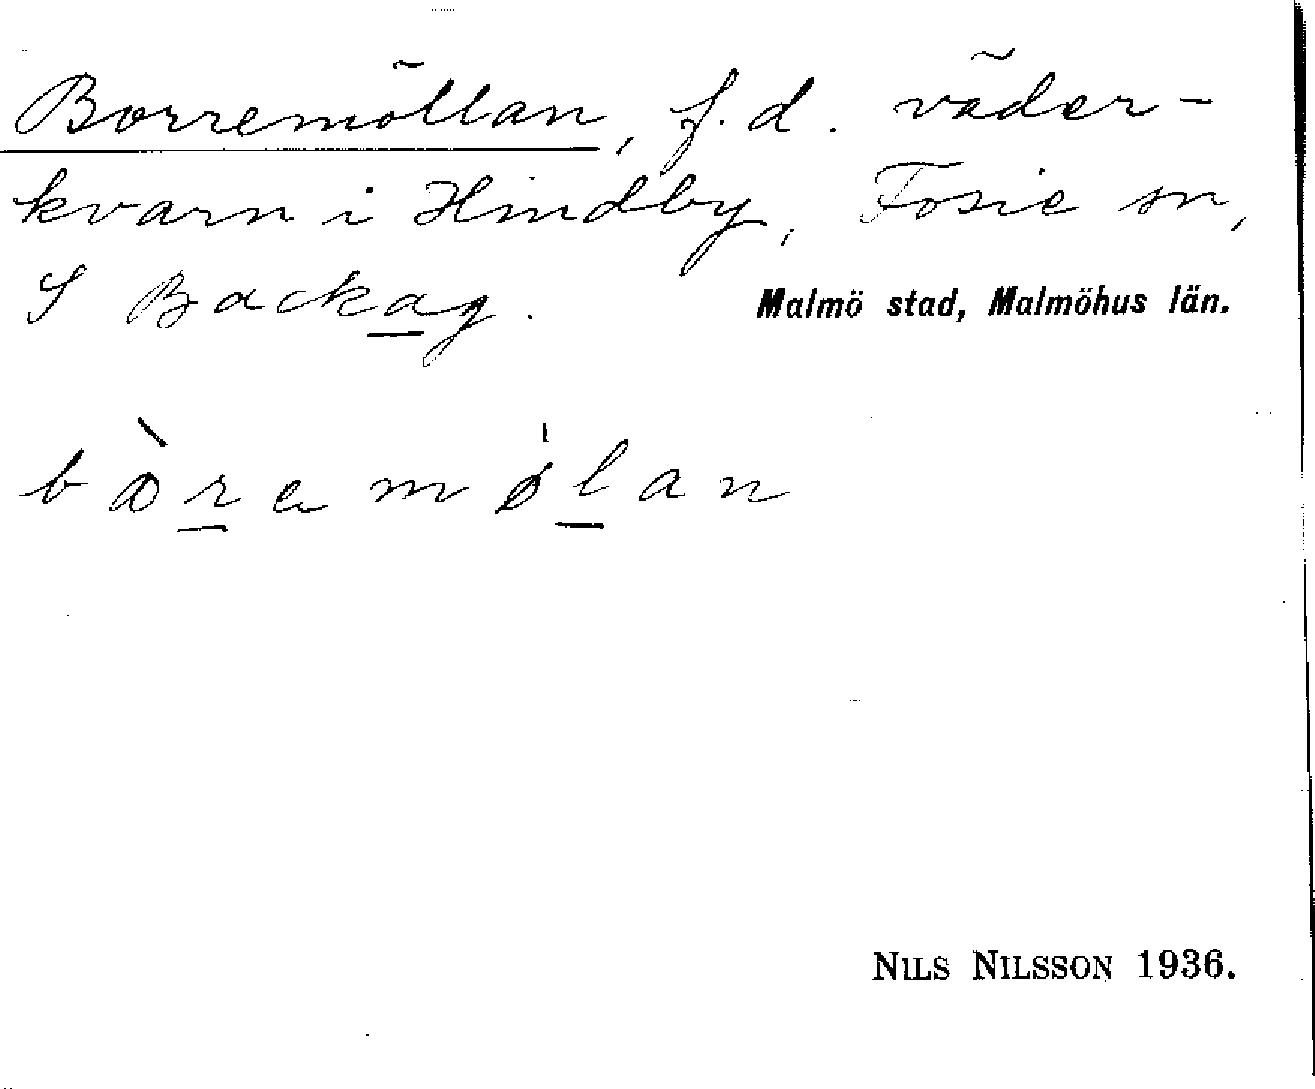 Borremöllan, f.d. väder-
kvarn i Hindby, Fosie sn,
S Backag.
Malmö stad, Malmöhus län.
bòremølan
NILS NILSSON 1936.